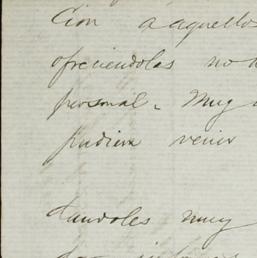 cion a aquellos
ofreciendoles no
personal. Muy
pudiera venir
dandoles muy